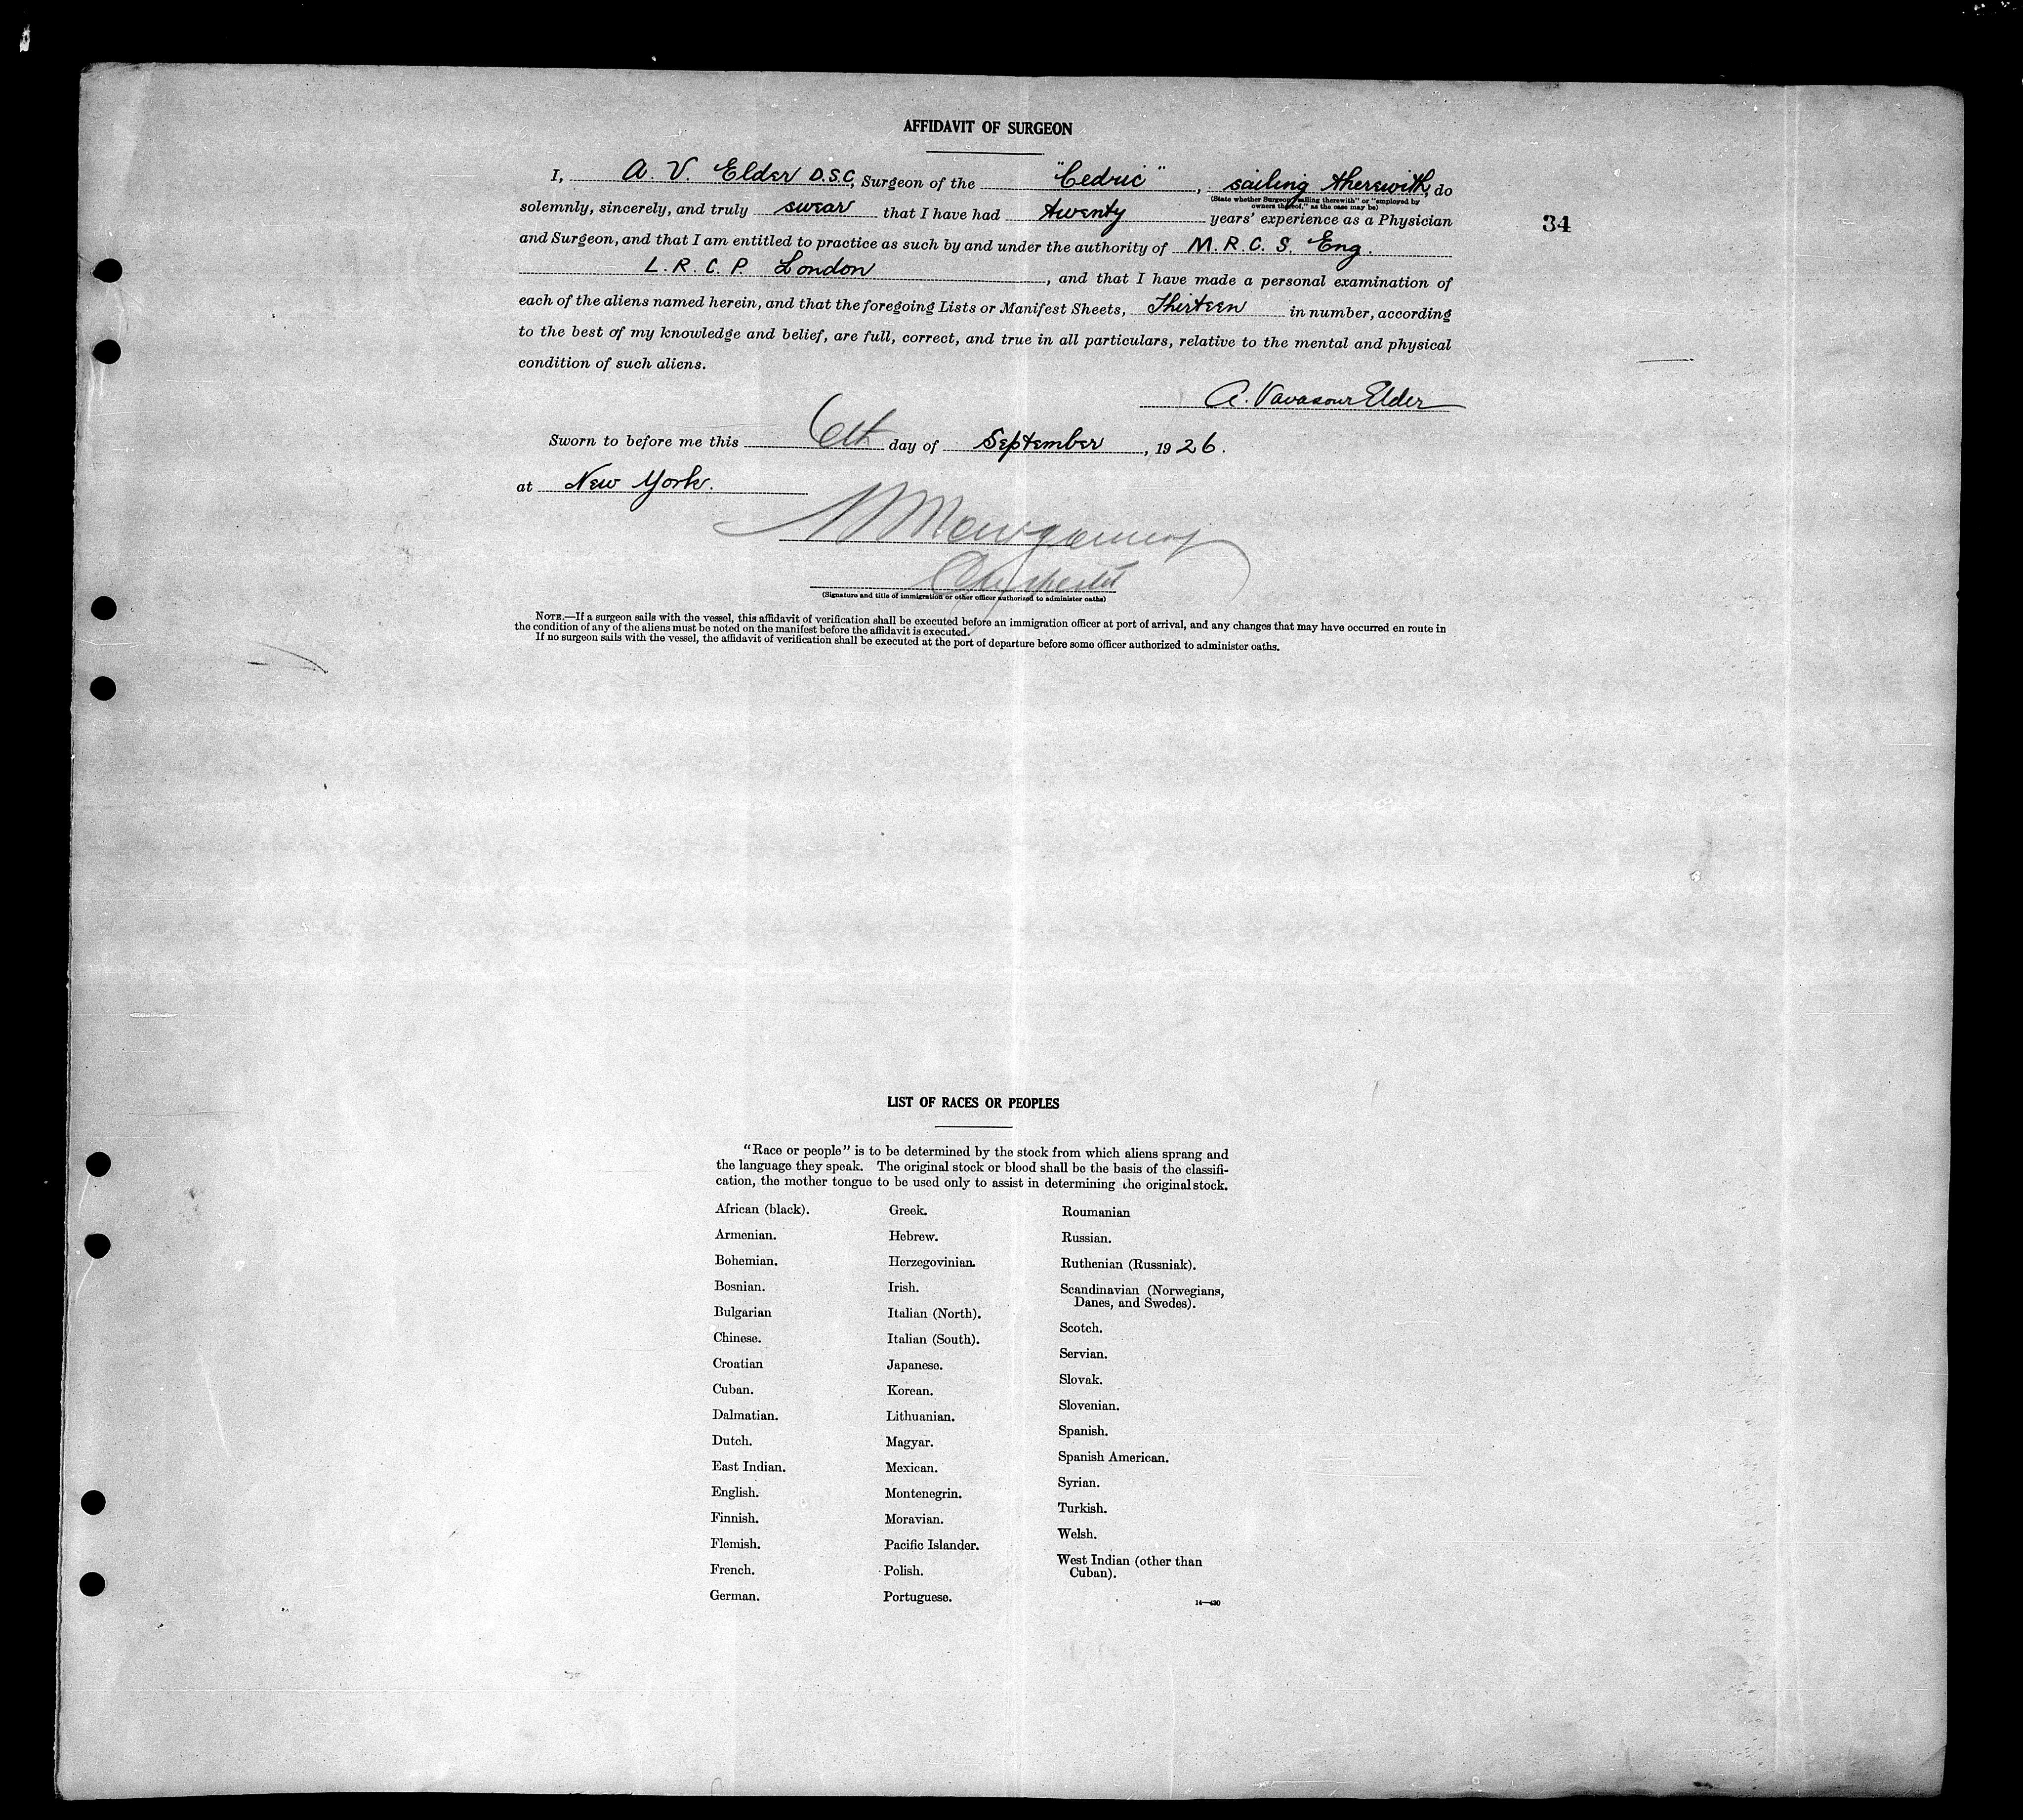 AFFIDAVIT OF SURGEON
I, A. V. Elder D.S.C, Surgeon of the "Cedric", sailing therewith, do
(State whether Surgeon "sailing therewith" or "employed by
owners thereof," as the case may be)
solemnly, sincerely, and truly swear that I have had twenty years' experience as a Physician
34
and Surgeon, and that I am entitled to practice as such by and under the authority of M. R. C. S. Eng.
L. R. C. P. London, and that I have made a personal examination of
each of the aliens named herein, and that the foregoing Lists or Manifest Sheets, Thirteen in number, according
to the best of my knowledge and belief, are full, correct, and true in all particulars, relative to the mental and physical
condition of such aliens.
A. Vavasour Elder
Sworn to before me this 6th day of September, 1926.
at New York.
Montgomery
(Signature and title of immigration or other officer authorized to administer oaths)
NOTE.—If a surgeon sails with the vessel, this affidavit of verification shall be executed before an immigration officer at port of arrival, and any changes that may have occurred en route in
the condition of any of the aliens must be noted on the manifest before the affidavit is executed.
If no surgeon sails with the vessel, the affidavit of verification shall be executed at the port of departure before some officer authorized to administer oaths.
LIST OF RACES OR PEOPLES
"Race or people" is to be determined by the stock from which aliens sprang and
the language they speak. The original stock or blood shall be the basis of the classifi-
cation, the mother tongue to be used only to assist in determining the original stock.
African (black).
Armenian.
Bohemian.
Bosnian.
Bulgarian
Chinese.
Croatian
Cuban.
Dalmatian.
Dutch.
East Indian.
English.
Finnish.
Flemish.
French.
German.
Greek.
Hebrew.
Herzegovinian.
Irish.
Italian (North).
Italian (South).
Japanese.
Korean.
Lithuanian.
Magyar.
Mexican.
Montenegrin.
Moravian.
Pacific Islander.
Polish.
Portuguese.
Roumanian
Russian.
Ruthenian (Russniak).
Scandinavian (Norwegians,
Danes, and Swedes).
Scotch.
Servian.
Slovak.
Slovenian.
Spanish.
Spanish American.
Syrian.
Turkish.
Welsh.
West Indian (other than
Cuban).
14—430